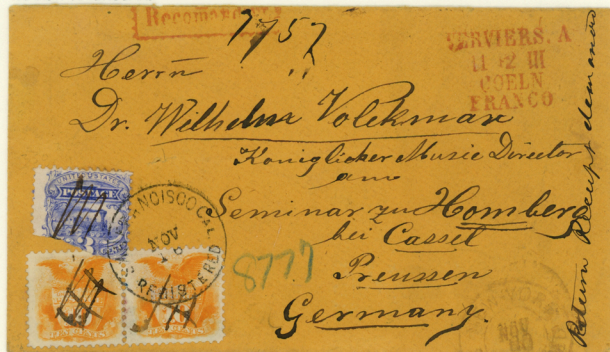 Recomandirt
7757
VERVIERS. A
11 12 III
COELN
FRANCO
Herrn
Dr. Wilhelm Volckmar
Königlicher Music Director
am
Seminar zu Homberg
bei Cassel
Preussen
Germany.
Return Receipt demanded
8777
POSTAGE
SAN FRANCISCO CAL.
NOV
REGISTERED
TEN CENTS
NOV